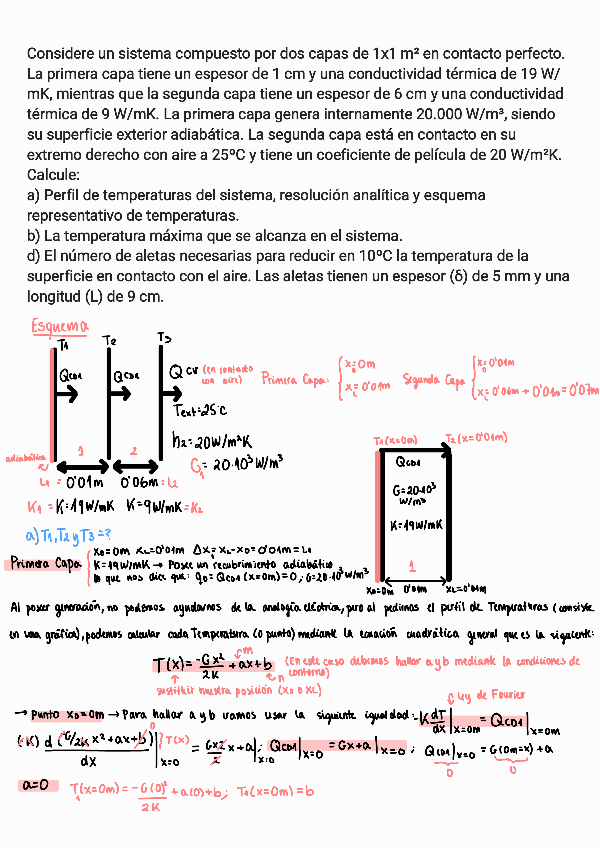 Considere un sistema compuesto por dos capas de 1x1 m² en contacto perfecto.
La primera capa tiene un espesor de 1 cm y una conductividad térmica de 19 W/
mK, mientras que la segunda capa tiene un espesor de 6 cm y una conductividad
térmica de 9 W/mK. La primera capa genera internamente 20.000 W/m³, siendo
su superficie exterior adiabática. La segunda capa está en contacto en su
extremo derecho con aire a 25ºC y tiene un coeficiente de película de 20 W/m²K.
Calcule:
a) Perfil de temperaturas del sistema, resolución analítica y esquema
representativo de temperaturas.
b) La temperatura máxima que se alcanza en el sistema.
d) El número de aletas necesarias para reducir en 10ºC la temperatura de la
superficie en contacto con el aire. Las aletas tienen un espesor (δ) de 5 mm y una
longitud (L) de 9 cm.
Esquema
T1 T2 T3
QCD1 QCD1 QCV (en contacto con aire)
Text=25ºC
h2=20W/m²K
G1=20·10³W/m³
adiabática 1 2
L1=0'01m 0'06m=L2
K1=K=19W/mK K=9W/mK=K2
Primera Capa: x0=0m
xL=0'01m
Segunda Capa x0=0'01m
xL=0'06m+0'01m=0'07m
T1(x=0m) T2(x=0'01m)
QCD1
G=20·10³
W/m³
K=19W/mK
1
x0=0m 0'01m xL=0'01m
a) T1,T2 y T3=?
Primera Capa x0=0m xL=0'01m Δx=xL-x0=0'01m=L1
K=19W/mK → Posee un recubrimiento adiabático
lo que nos dice que: q0=QCD1(x=0m)=0; G=20·10³W/m³
Al poseer generación, no podemos ayudarnos de la analogía eléctrica, pero al pedirnos el perfil de Temperaturas (consiste
en una gráfica), podemos calcular cada Temperatura (o punto) mediante la ecuación cuadrática general que es la siguiente:
T(x)=-Gx²/2K+ax+b (En este caso debemos hallar a y b mediante la condiciones de
contorno)
m
n
sustituir nuestra posición (x0 o xL)
Ley de Fourier
→ Punto x0=0m → Para hallar a y b vamos usar la siguiente igualdad: -K dT/dx|x=0m = QCD1|x=0m
(-K) d(-G/2K x²+ax+b)/dx |x=0 T(x) = G2x/2+a|x=0; QCD1|x=0=Gx+a|x=0; QCD1|x=0=G(0m=x)+a
0 0 0
a=0 T(x=0m)=-G(0)²/2K+a(0)+b; T1(x=0m)=b